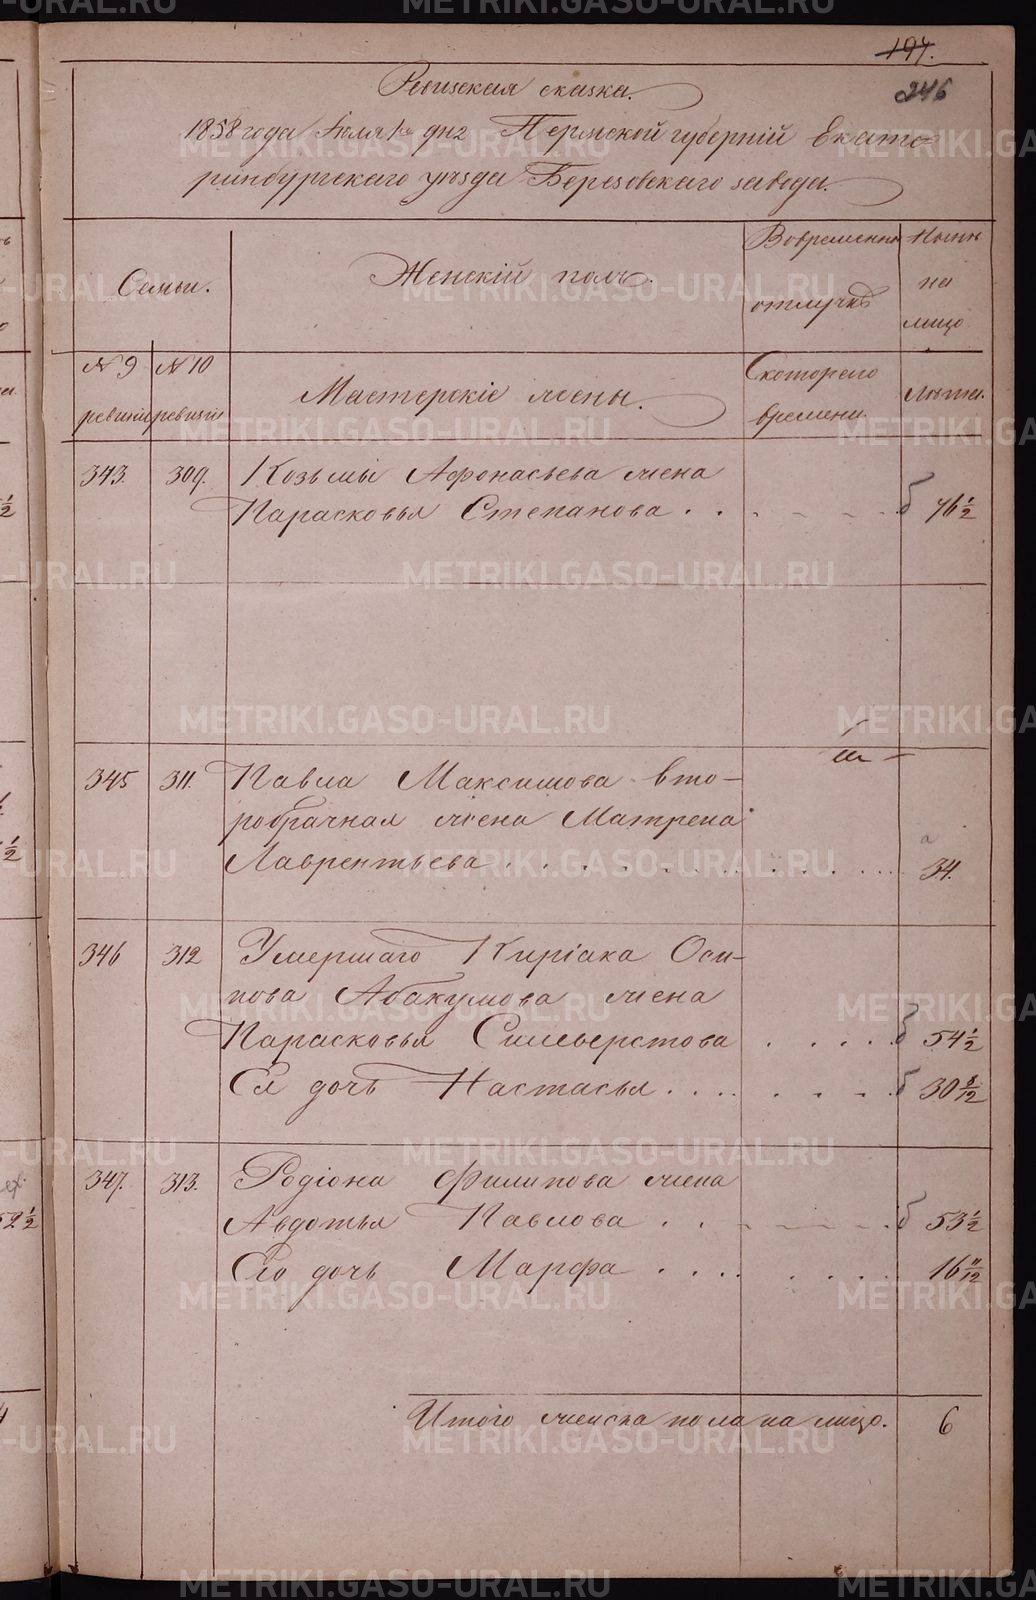 197.
246
Ревизская сказка.
1858 года Іюля 1го дня Пермской губерніи Екате-
ринбургскаго уѣзда Березовскаго завода.
Семьи.
Женскій полъ.
Вовременной отлучкѣ
Нынѣ на лицо
№ 9 ревизіи
№ 10 ревизіи
Мастерскіе жены.
Скотораго времени.
Лѣта.
343. 309. Козьмы Афонасьева жена
Парасковья Степанова . . . . . . . б 46 1/2
345 311. Павла Максимова вто-
робрачная жена Матрена
Лаврентьева . . . . . . . . 34.
346 312 Умершаго Киріака Оси-
пова Абакумова жена
Парасковья Сильверстова . . . . б 54 1/2
Ея дочь Настасья . . . . . . . б 30 8/12
347. 313. Родіона Филипова жена
Авдотья Павлова . . . . . . . б 53 1/2
Его дочь Марфа . . . . . . . 16 11/12
Итого женска пола на лицо. 6
METRIKI.GASO-URAL.RU